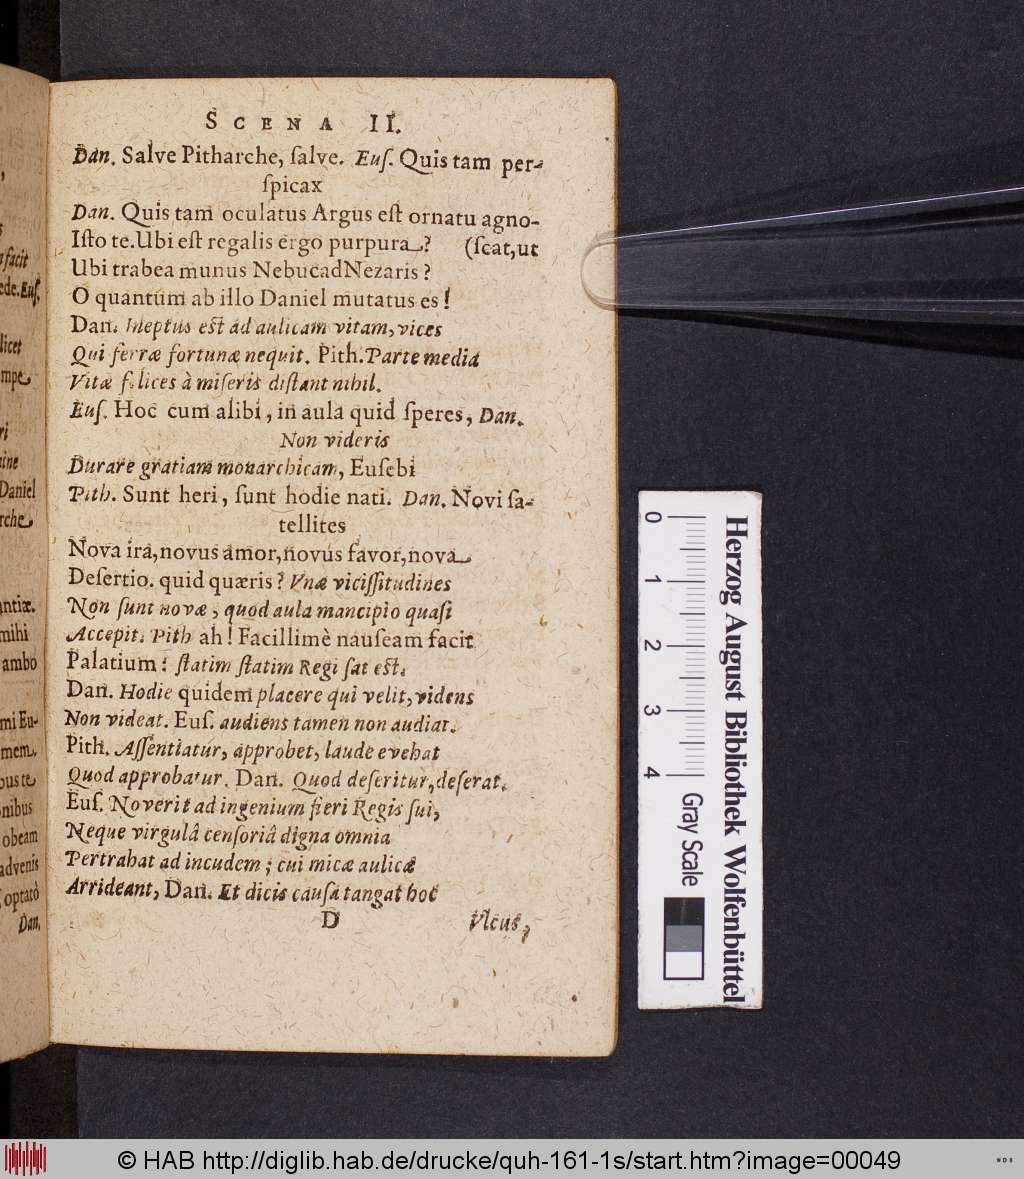 SCENA II.
Dan. Salve Pitharche, ſalve. Euſ. Quis tam per-
ſpicax
Dan. Quis tam oculatus Argus eſt ornatu agno-
Iſto te. Ubi eſt regalis ergo purpura? (ſcat, ut
Ubi trabea munus NebucadNezaris?
O quantum ab illo Daniel mutatus es!
Dan. Ineptus eſt ad aulicam vitam, vices
Qui ferræ fortunæ nequit. Pith. Parte media
Vitæ felices à miſeris diſtant nihil.
Euſ. Hoc cum alibi, in aula quid ſperes, Dan.
Non videris
Durare gratiam monarchicam, Euſebi
Pith. Sunt heri, ſunt hodie nati. Dan. Novi ſa-
tellites
Nova ira, novus amor, novus favor, nova
Deſertio. quid quæris? Vnæ viciſſitudines
Non ſunt novæ, quod aula mancipio quaſi
Accepit. Pith ah! Facillimè nauſeam facit
Palatium: ſtatim ſtatim Regi ſat eſt.
Dan. Hodie quidem placere qui velit, videns
Non videat. Euſ. audiens tamen non audiat.
Pith. Aſſentiatur, approbet, laude evehat
Quod approbatur. Dan. Quod deſeritur, deſerat.
Euſ. Noverit ad ingenium fieri Regis ſui,
Neque virgulâ cenſoriâ digna omnia
Pertrahat ad incudem; cui micæ aulicæ
Arrideant, Dan. Et dicis cauſâ tangat hoc
D Vlcus,
facit
ede. Euſ.
licet
mpe
Daniel
rche
antiæ.
mihi
ambo
mi Eu-
mem.
ous te
nibus
obeam
advenis
optatò
Dan.
0 1 2 3 4
Gray Scale
Herzog August Bibliothek Wolfenbüttel
© HAB http://diglib.hab.de/drucke/quh-161-1s/start.htm?image=00049